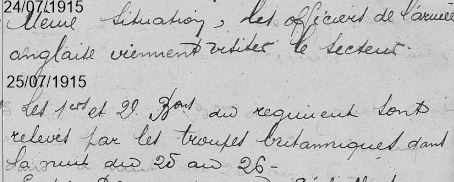 24/07/1915
Même situation, les officiers de l'armée
anglaise viennent visiter le secteur.
25/07/1915
Les 1ers et 2d. Bons du regiment sont
relevés par les troupes britanniques dans
la nuit du 25 au 26-